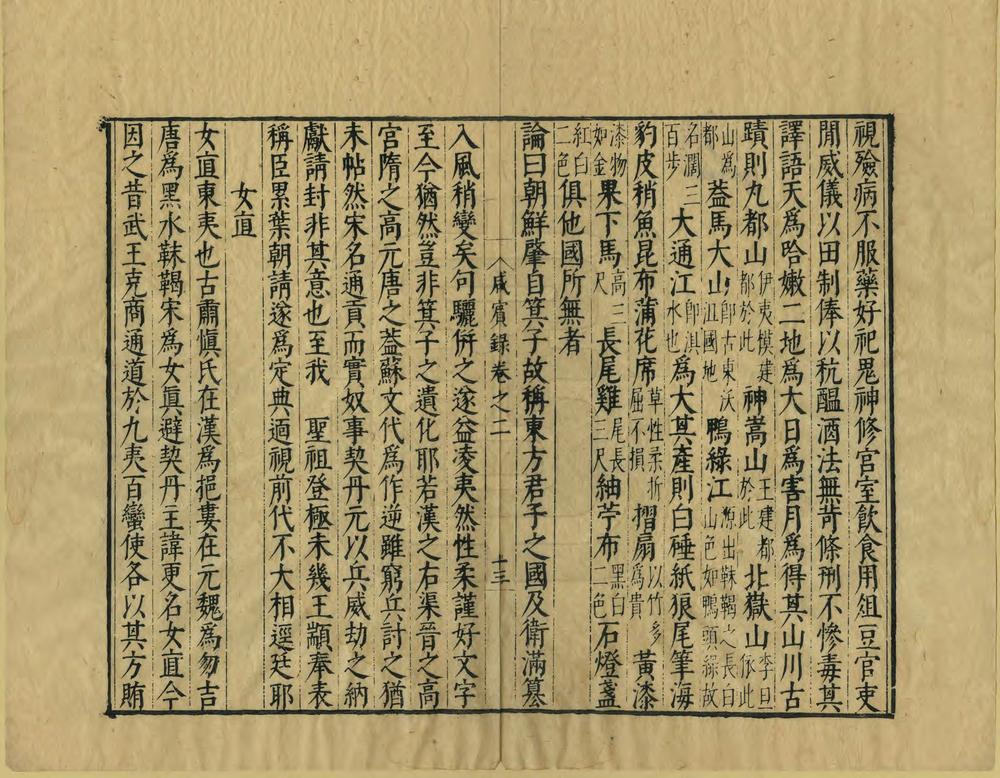 視殮病不服藥好祀鬼神修宮室飲食用俎豆官吏
閒威儀以田制俸以秔醞酒法無苛條刑不慘毒其
譯語天爲哈嫩二地爲大日爲害月爲得其山川古
蹟則九都山伊夷模建都於此神嵩山王建都於此北嶽山李旦依此
山爲都葢馬大山卽古東沃沮國地鴨綠江源出靺鞨之長白山色如鴨頭綠故
名濶三百步大通江卽浿水也爲大其產則白硾紙狼尾筆海
豹皮稍魚昆布蒲花席草性柔折屈不損摺扇以竹多爲貴黃漆
漆物如金果下馬高三尺長尾雞尾長三尺紬苧布黑白二色石燈盞
紅白二色俱他國所無者
論曰朝鮮肇自箕子故稱東方君子之國及衛滿篡
咸賓錄卷之二 十三
入風稍變矣句驪併之遂益凌夷然性柔謹好文字
至今猶然豈非箕子之遺化耶若漢之右渠晉之高
宮隋之高元唐之葢蘇文代爲作逆雖窮兵討之猶
未帖然宋名通貢而實奴事契丹元以兵威劫之納
獻請封非其意也至我 聖祖登極未幾王顓奉表
稱臣累葉朝請遂爲定典迴視前代不大相逕廷耶
女直
女直東夷也古肅愼氏在漢爲挹婁在元魏爲勿吉
唐爲黑水靺鞨宋爲女眞避契丹主諱更名女直今
因之昔武王克商通道於九夷百蠻使各以其方賄